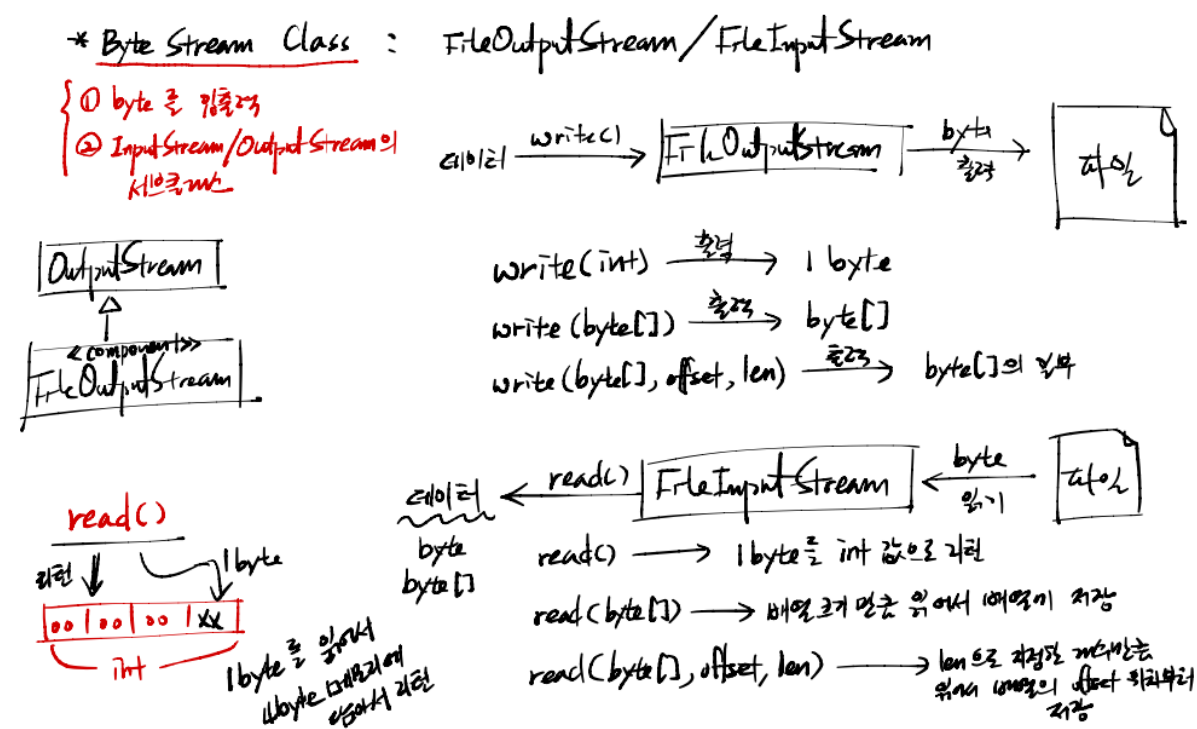 * Byte Stream Class : FileOutputStream/FileInputStream
① byte를 입출력
② InputStream/OutputStream의
서브클래스
데이터 write() FileOutputStream byte 출력 파일
OutputStream
<<component>>
FileOutputStream
write(int) 출력 1 byte
write(byte[]) 출력 byte[]
write(byte[], offset, len) 출력 byte[]의 일부
데이터 read() FileInputStream byte 읽기 파일
byte
byte[]
read() 1byte를 int 값으로 리턴
read(byte[]) 배열 크기 만큼 읽어서 배열에 저장
read(byte[], offset, len) len으로 지정한 개수만큼
읽어서 배열의 offset 위치부터
저장
read()
리턴 1byte
00 00 00 xx
int
1byte를 읽어서
4byte 메모리에
담아서 리턴